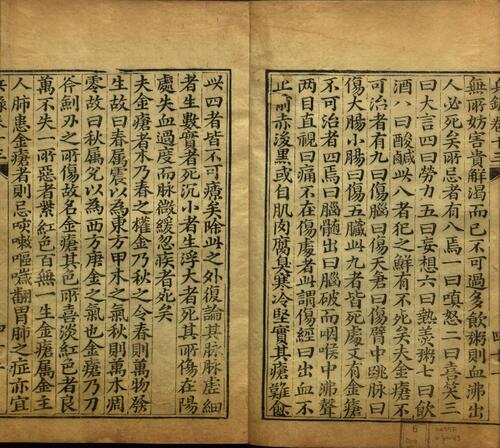 無所妨害貴解渴而已不可過飲粥則血沸出
人必死矣所忌者有八焉一曰嗔怒二曰喜笑三
曰大言四曰勞力五曰妄想六曰熱羹粥七曰飲
酒八曰酸鹹此八者犯之鮮有不死矣夫金瘡不
可治者有九曰傷腦曰傷天倉曰傷臂中跳脉曰
傷大腸小腸曰傷五臟此九者皆死處又有金瘡
不可治者四焉曰腦髓出曰腦破而咽喉中沸聲
两目直視曰痛不在傷處者此謂傷經曰出血不
止前赤後黑或自肌肉腐臭寒冷堅實其瘡難愈
此四者皆不可療矣除此之外復論其脉脉虛細
者生數實者死沉小者生浮大者死其所傷在陽
處失血過度而脉微緩忽疾者死矣
夫金瘡者木乃春之權金乃秋之令春則萬物發
生故曰春属震以為東方甲木之氣秋則萬木凋
零故曰秋属兌以為西方庚金之氣也金瘡乃刀
斧劍刃之所傷故名金瘡其色所喜淡紅色者良
萬不失一所惡者紫紅色百無一生金瘡属金主
人肺患金瘡者則忌咳嗽嘔噦翻胃肺之症亦宜